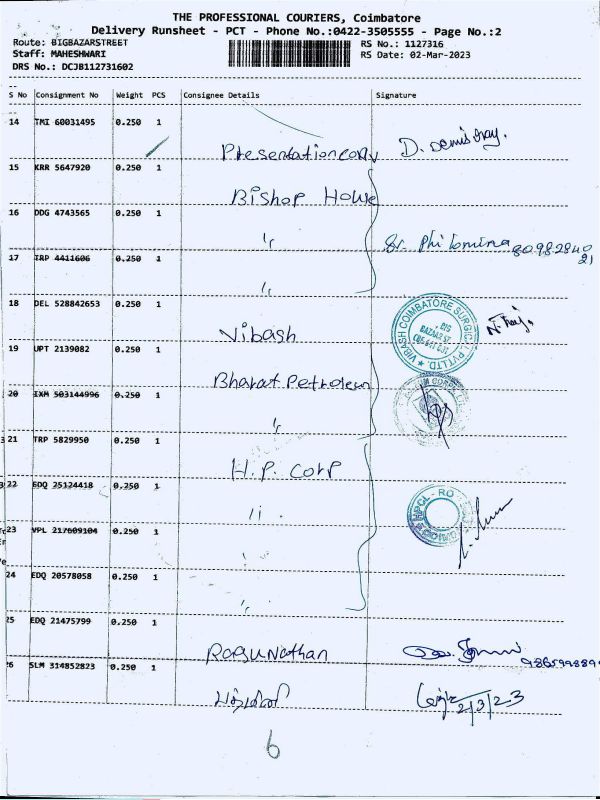 THE PROFESSIONAL COURIERS, Coimbatore
Delivery Runsheet - PCT - Phone No.:0422-3505555 - Page No.:2
Route: BIGBAZARSTREET RS No.: 1127316
Staff: MAHESHWARI RS Date: 02-Mar-2023
DRS No.: DCJB112731602
S No Consignment No Weight PCS Consignee Details Signature
14 TMI 60031495 0.250 1
Presentation copy D.
15 KRR 5647920 0.250 1
Bishop House
16 DDG 4743565 0.250 1
" Sr. Philomina 8098284021
17 TRP 4411606 0.250 1
"
18 DEL 528842653 0.250 1
Vibash VIBASH COIMBATORE SURGICAL PVT LTD. BIG BAZAAR ST. N.
19 UPT 2139082 0.250 1
Bharat Petroleum
20 IXM 503144996 0.250 1
"
21 TRP 5829950 0.250 1
H.P. Corp
22 EDQ 25124418 0.250 1
" HPCL - RO
23 VPL 217609104 0.250 1
"
24 EDQ 20578058 0.250 1
"
25 EDQ 21475799 0.250 1
Ragunathan
26 SLM 314852823 0.250 1
2/3/23
6